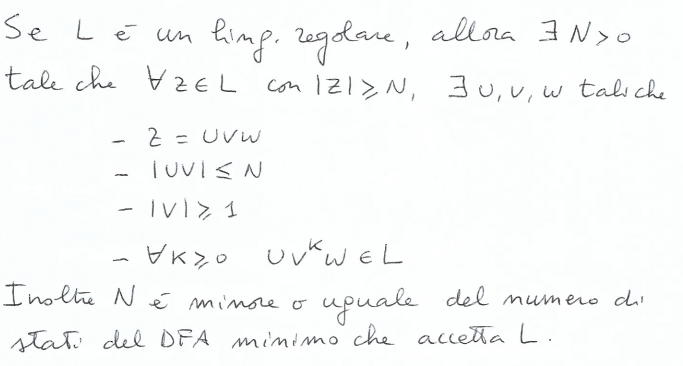 Se L è un ling. regolare, allora ∃ N>0
tale che ∀ z ∈ L con |z| ⩾ N, ∃ u, v, w tali che
- z = uvw
- |uv| ≤ N
- |v| ⩾ 1
- ∀k⩾0 uv^k w ∈ L
Inoltre N è minore o uguale del numero di
stati del DFA minimo che accetta L.